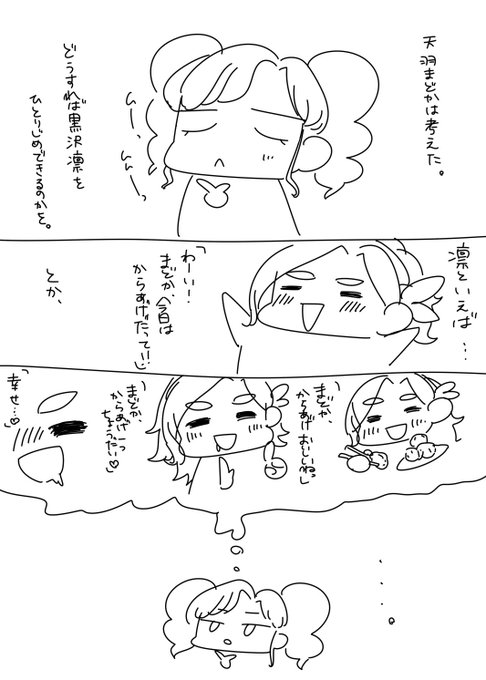 天羽まどかは考えた。
むー、
むむー、
どうすれば黒沢凛を
ひとりじめできるのかを。
凛といえば…
「わーい!
まどか、今日は
からあげだって!!」
とか、
「まどか、
からあげおいしいねっ」
「まどか、
からあげーっ
ちょうだい♡」
「幸せ…♡」
....。